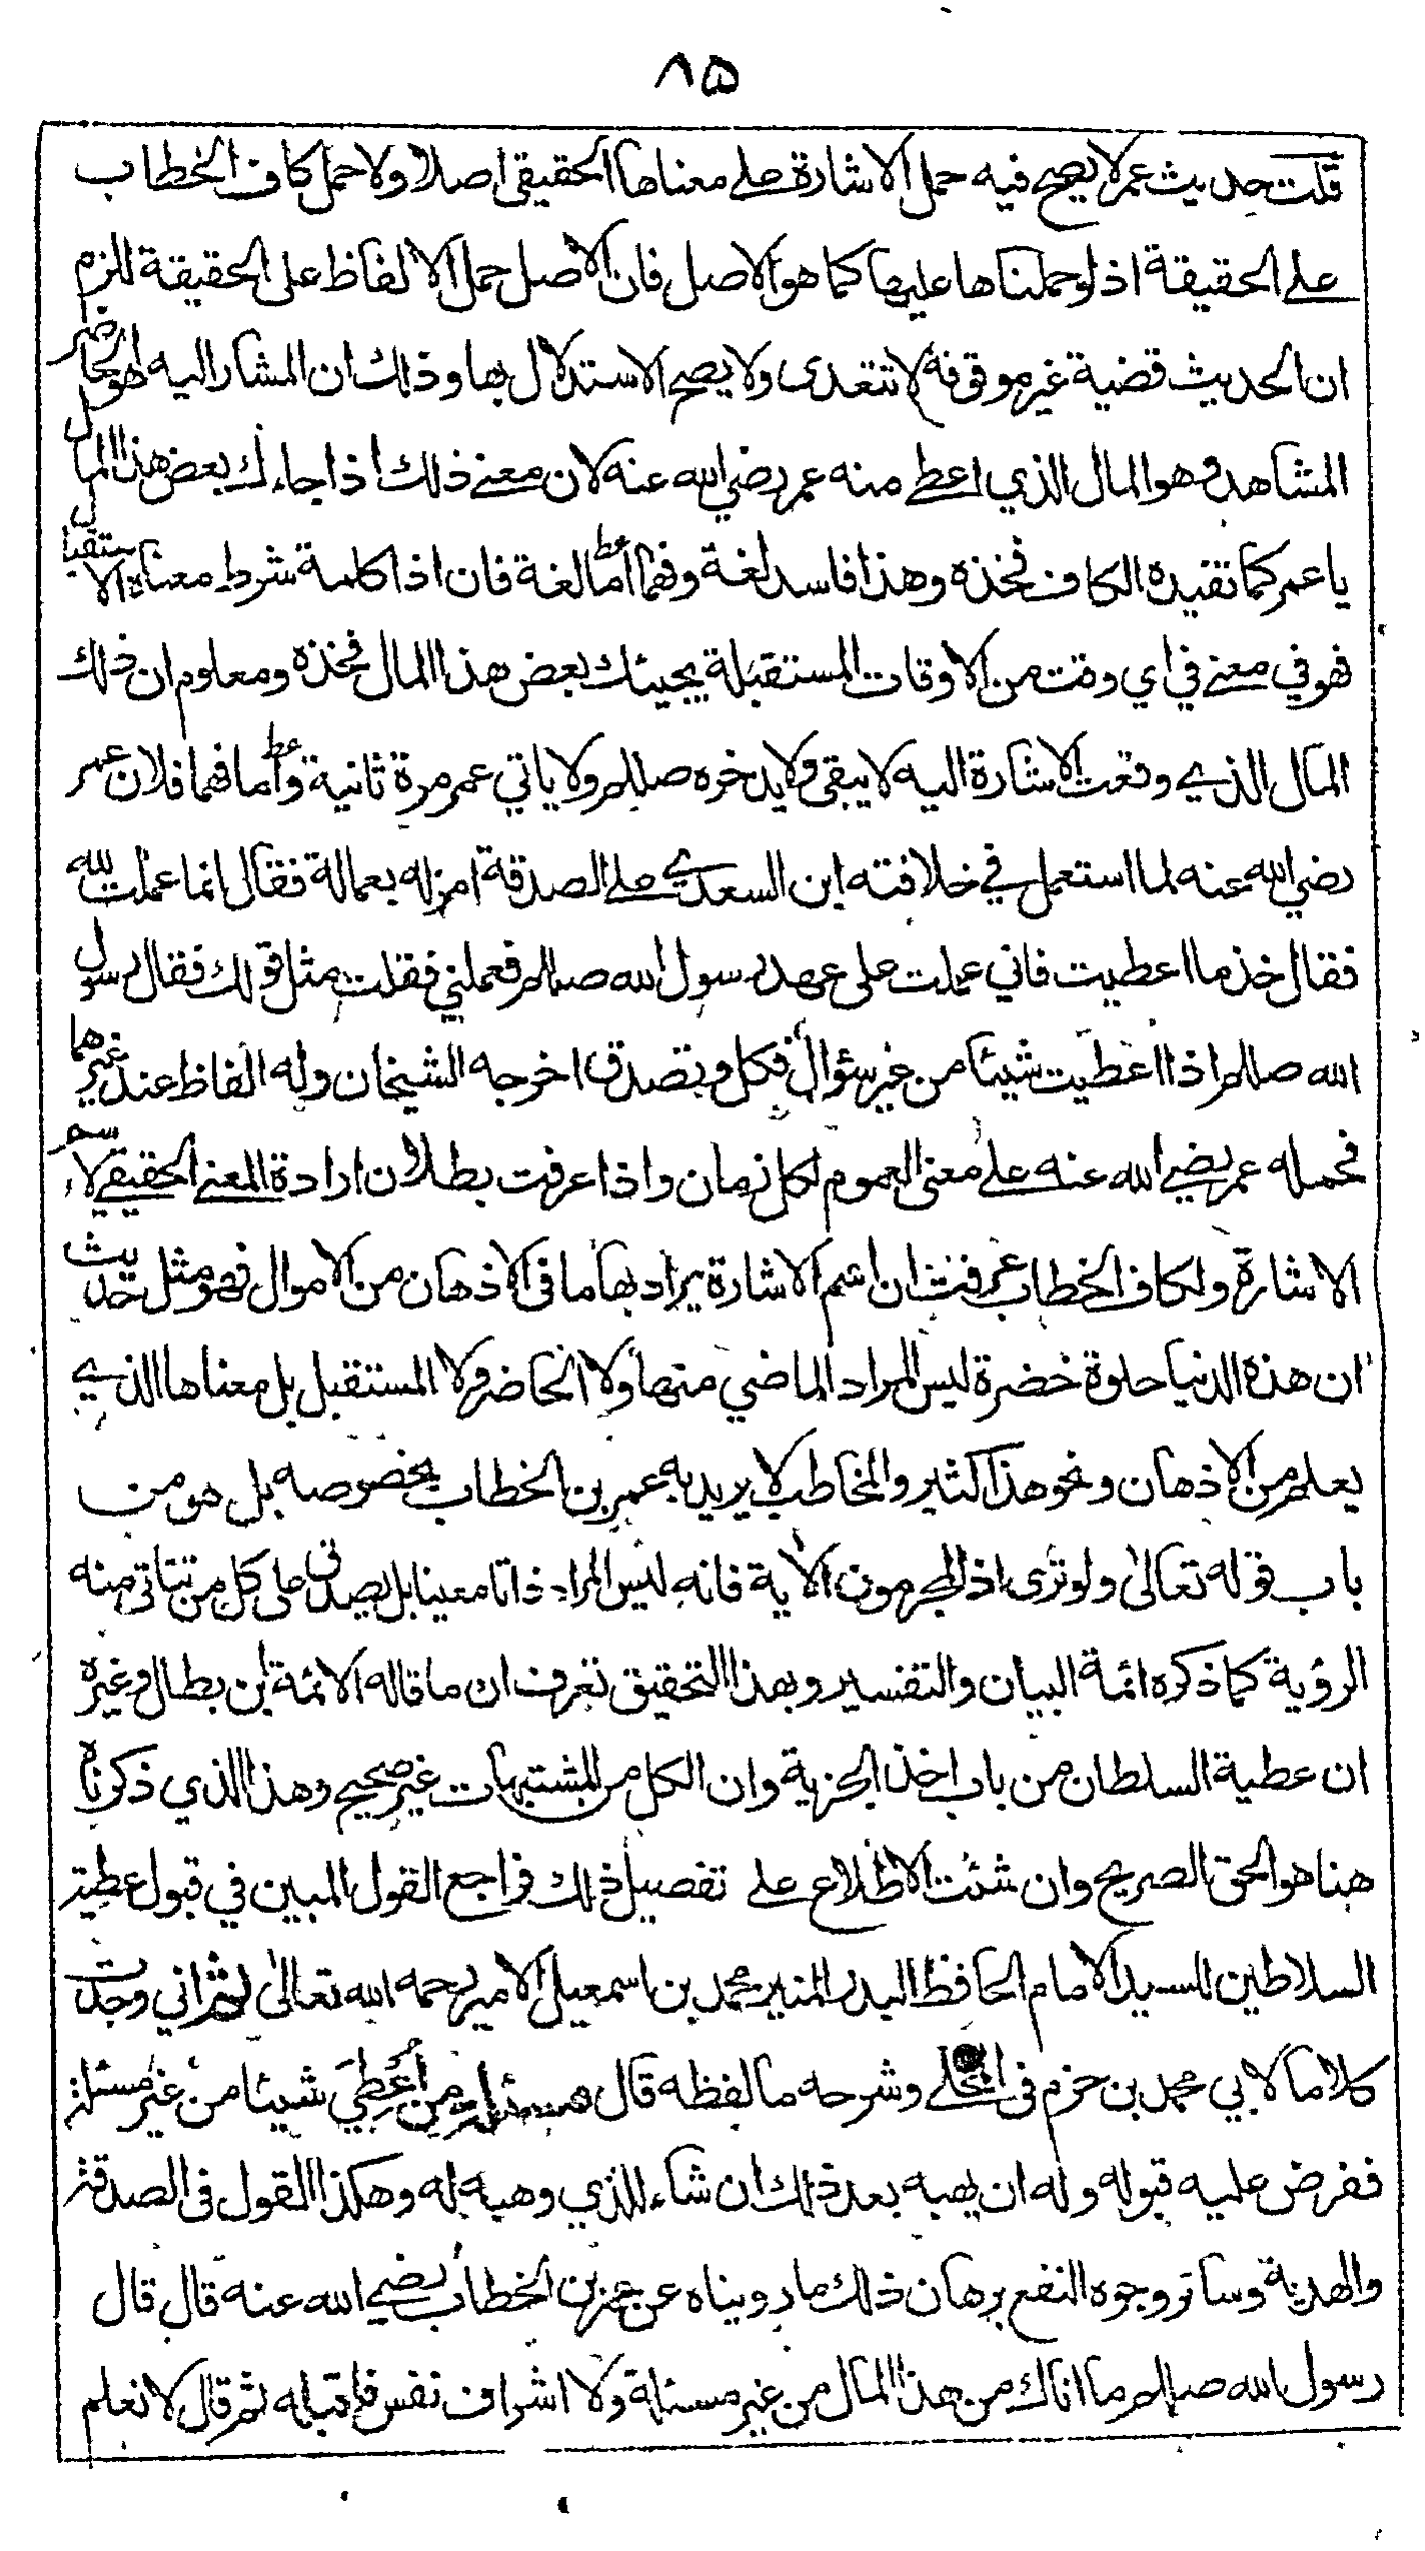 ٨۵
قلت حديث عمر لا يصح فيه حمل الاشارة على معناها الحقيقي اصلا ولا حمل كاف الخطاب
على الحقيقة اذ لو حملناها عليها كما هو الاصل فان الاصل حمل الالفاظ على الحقيقة للزم
ان الحديث قضية غير موقوفة لا تتعدى ولا يصح الاستدلال بها وذلك ان المشار اليه هو الحاضر
المشاهد وهو المال الذي اعطى منه عمر رضي الله عنه لان معنى ذلك اذا جاءك بعض هذا المال
يا عمر كما تفيده الكاف فخذه وهذا فاسد لغة وفهما اما لغة فان اذا كلمة شرط معناه الاستقبال
فهو في معنى في اي وقت من الاوقات المستقبلة يجيئك بعض هذا المال فخذه ومعلوم ان ذلك
المال الذي وقعت الاشارة اليه لا يبقى ولا يدخره صللم ولا ياتي عمر مرة ثانية واما فهما فلان عمر
رضي الله عنه لما استعمل في خلافته ابن السعدي على الصدقة امر له بعمالة فقال انما عملت لله
فقال خذ ما اعطيت فاني عملت على عهد رسول الله صللم فعملني فقلت مثل قولك فقال رسول
الله صللم اذا اعطيت شيئا من غير سؤال فكل وتصدق اخرجه الشيخان وله الفاظ عند غيرهما
فحمله عمر رضي الله عنه على معنى العموم لكل زمان واذا عرفت بطلان ارادة المعنى الحقيقي لاسم
الاشارة ولكاف الخطاب عرفت ان اسم الاشارة يراد بها ما في الاذهان من الاموال فهو مثل حديث
ان هذه الدنيا حلوة خضرة ليس المراد الماضي منها ولا الحاضر ولا المستقبل بل معناها الذي
يعلم من الاذهان ونحو هذا كثير والمخاطب لا يريد به عمر بن الخطاب بخصوصه بل هو من
باب قوله تعالى ولو ترى اذ المجرمون الاية فانه ليس المراد ذاتا معينا بل يصدق على كل من تتاتى منه
الرؤية كما ذكره ائمة البيان والتفسير وبهذا التحقيق تعرف ان ما قاله الائمة ابن بطال وغيره
ان عطية السلطان من باب اخذ الجزية وان الكل من المشتبهات غير صحيح وهذا الذي ذكرناه
هنا هو الحق الصريح وان شئت الاطلاع على تفصيل ذلك فراجع القول المبين في قبول عطية
السلاطين للسيد الامام الحافظ البدر المنير محمد بن اسمعيل الامير رحمه الله تعالى ثم اني وجدت
كلاما لابي محمد بن حزم في المحلى وشرحه ما لفظه قال مسئلة من أُعْطِيَ شيئا من غير مسئلة
ففرض عليه قبوله وله ان يهبه بعد ذلك ان شاء للذي وهبه له وهكذا القول في الصدقة
والهدية وسائر وجوه النفع برهان ذلك ما رويناه عن عمر بن الخطاب رضي الله عنه قال قال
رسول الله صللم ما اتاك من هذا المال من غير مسئلة ولا اشراف نفس فاقبله ثم قال لا نعلم